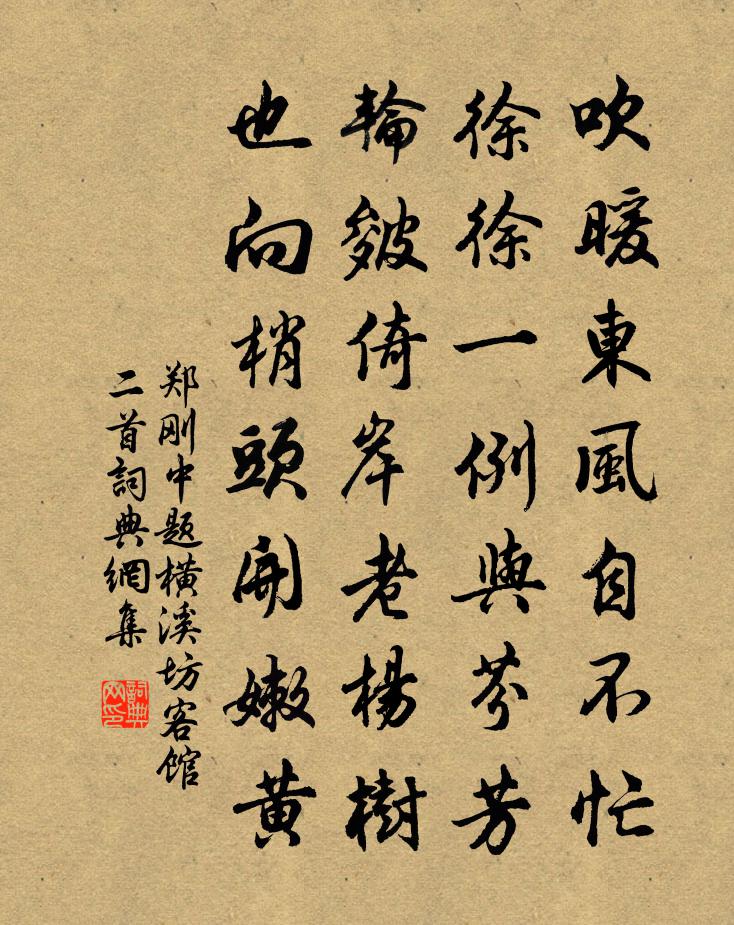 吹暖東風自不忙
徐徐一例與芬芳
輪皴倚岸老楊樹
也向梢頭開嫩黄
郑刚中题橫溪坊客馆
二首詞典網集
詞典
网印